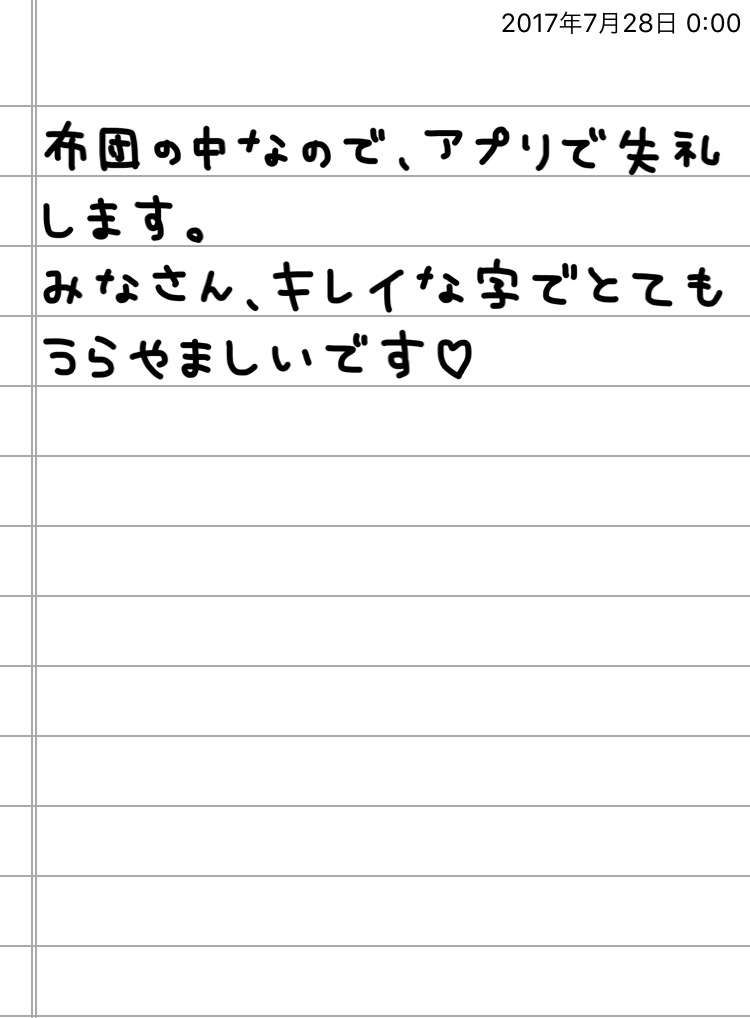 2017年7月28日 0:00
布団の中なので、アプリで失礼
します。
みなさん、キレイな字でとても
うらやましいです♡